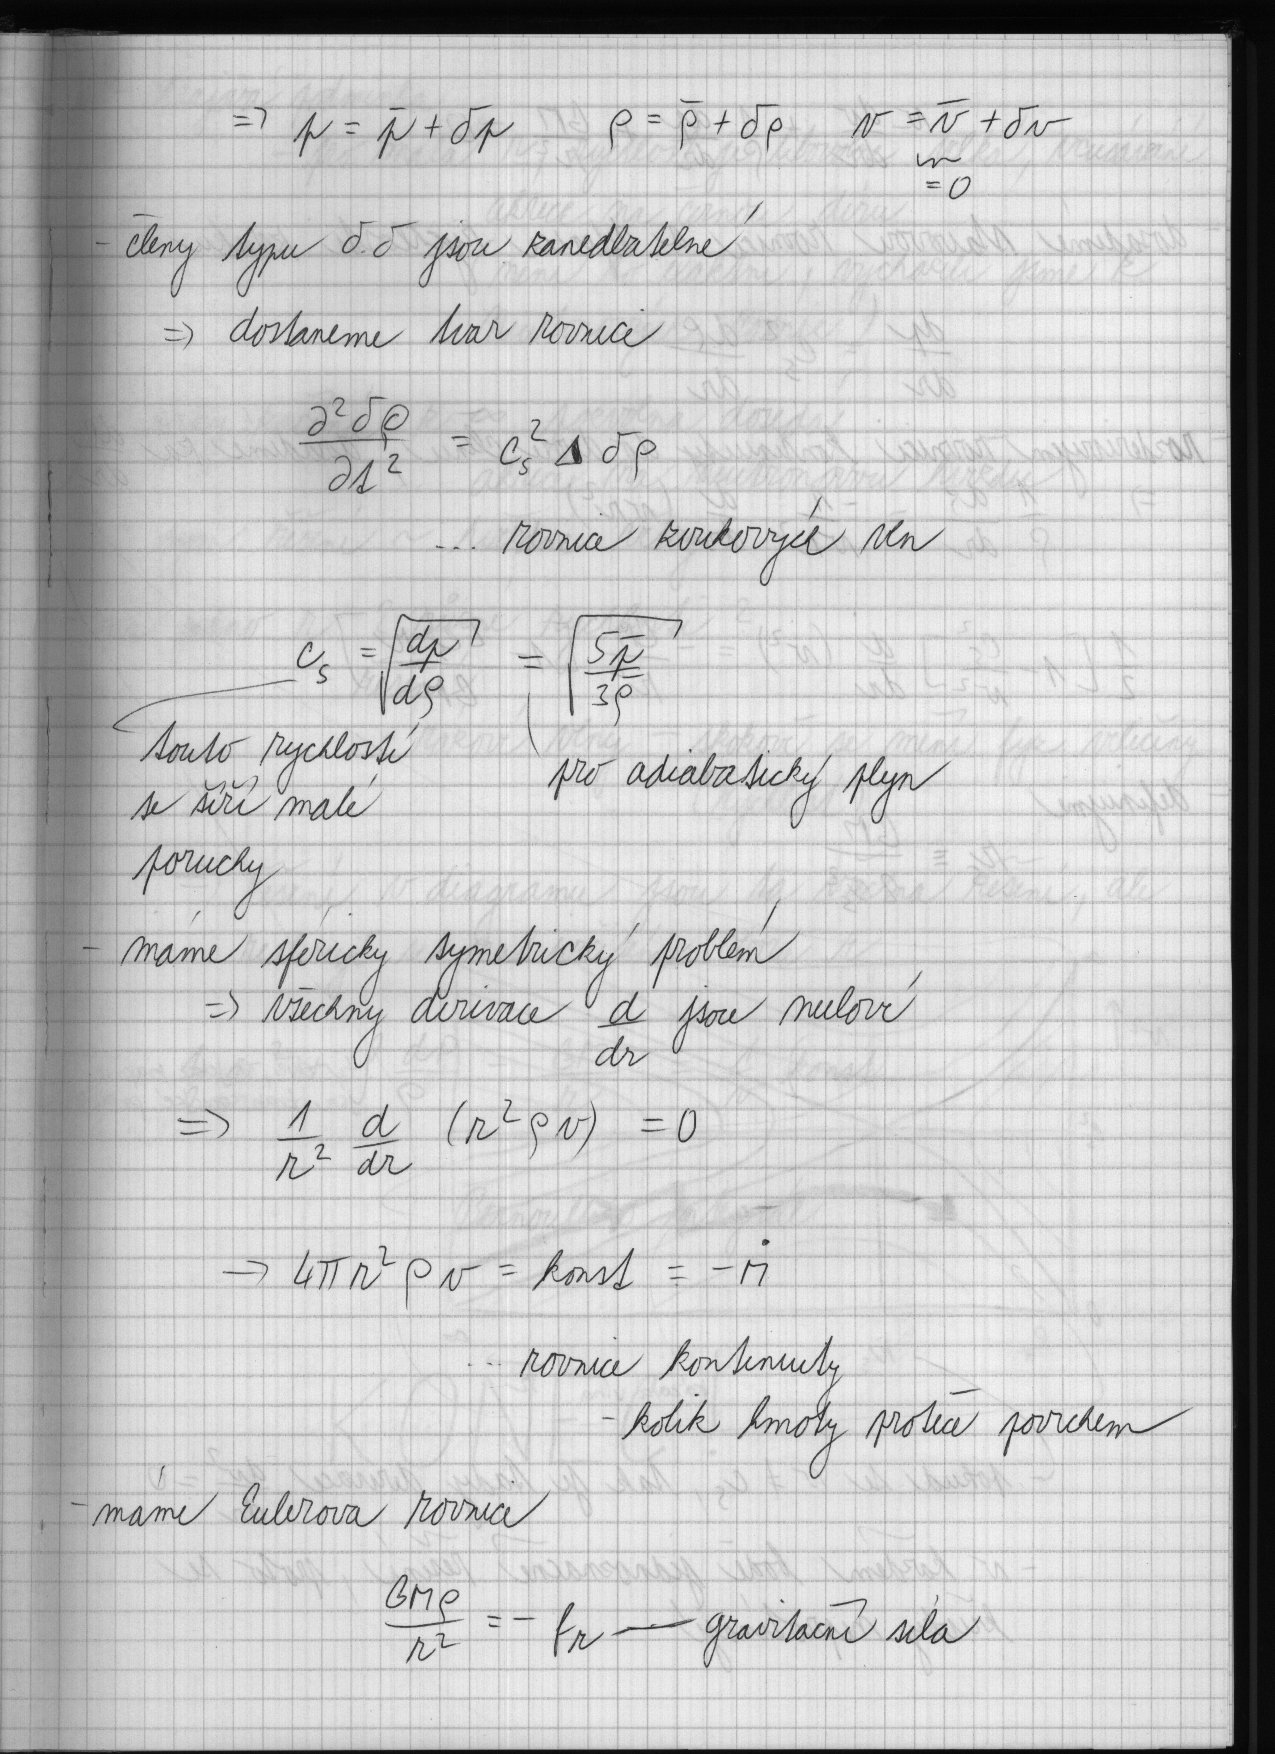 ⇒ p = p̄ + δp    ρ = ρ̄ + δρ    v = v̄ + δv
= 0
- členy typu δ.δ jsou zanedbatelné
⇒ dostaneme tvar rovnice
∂²δρ / ∂t² = c_s² Δ δρ
... rovnice zvukových vln
c_s = √(dp/dρ) = √(5p̄/3ρ̄)
touto rychlostí
se šíří malé
poruchy
pro adiabatický plyn
- máme sféricky symetrický problém
⇒ všechny derivace d/dr jsou nulové
⇒ 1/r² d/dr (r² ρ v) = 0
→ 4πr² ρ v = konst = -Ṁ
... rovnice kontinuity
- kolik hmoty proteče povrchem
- máme Eulerova rovnice
GMρ/r² = - f_r — gravitační síla